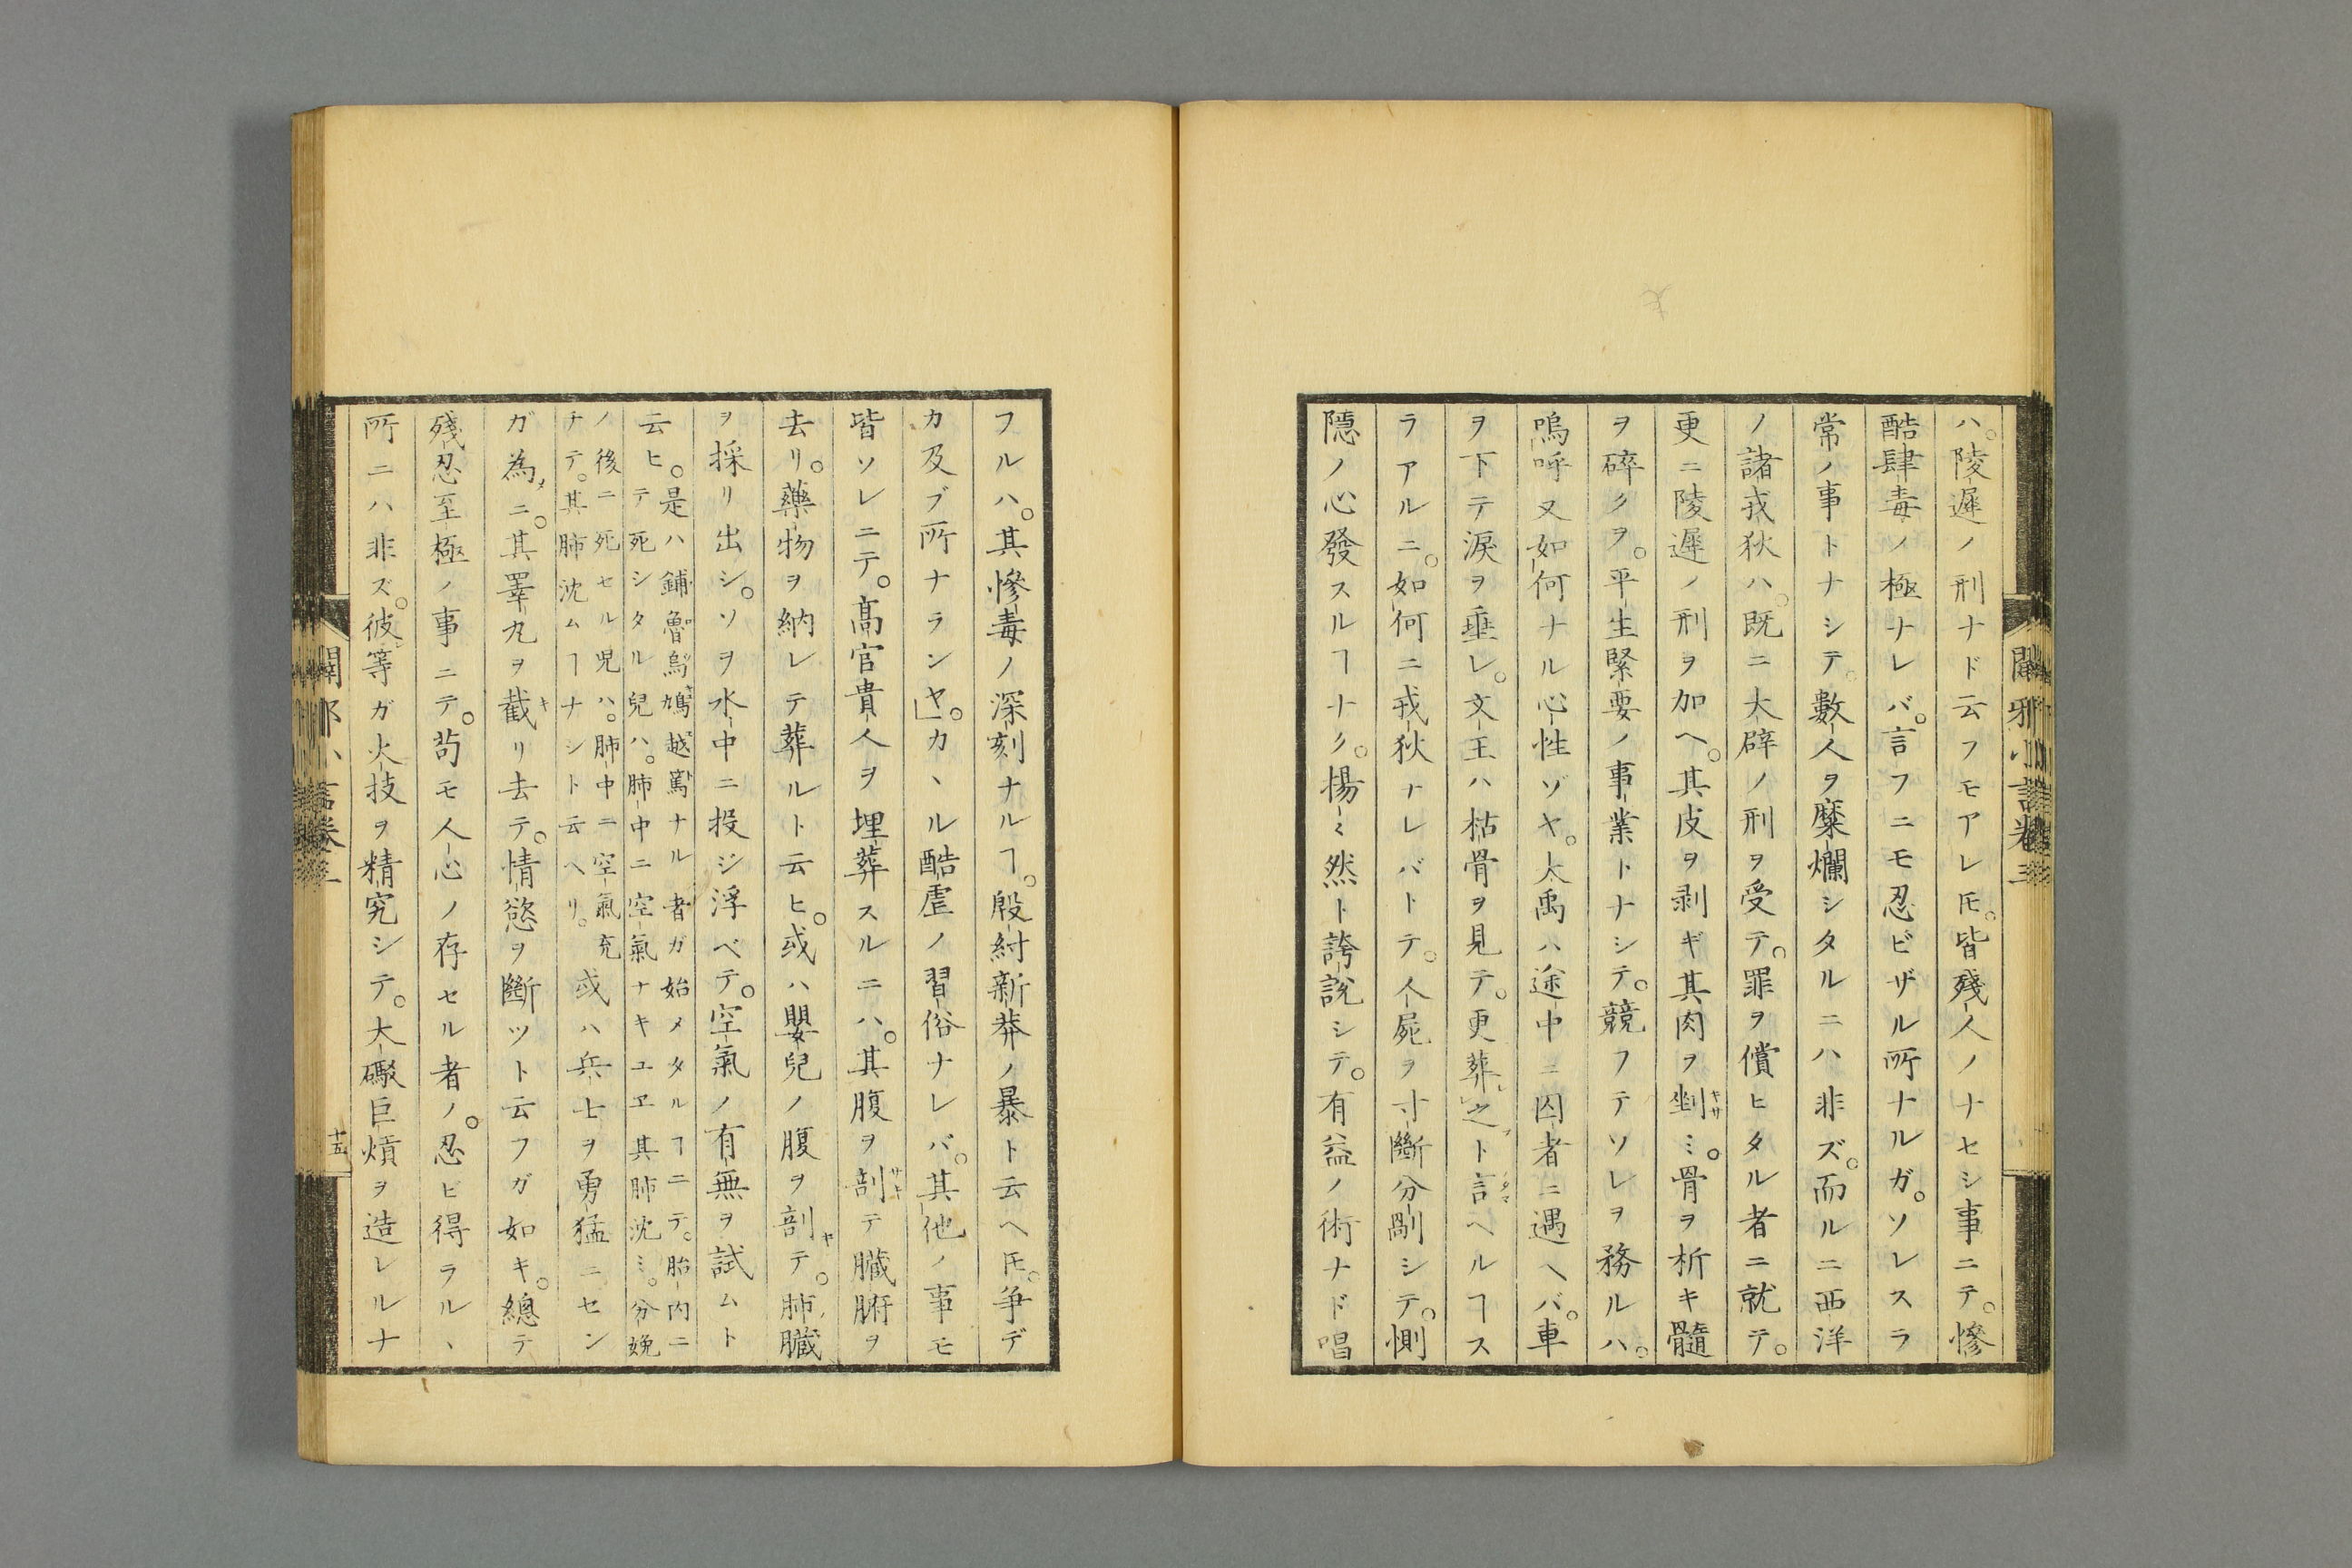 ハ。陵遲ノ刑ナド云フモアレ𪜈。皆殘人ノナセシ事ニテ。慘
酷肆毒ノ極ナレバ。言フニモ忍ビザル所ナルガ。ソレスラ
常ノ事トナシテ。數人ヲ糜爛シタルニハ非ズ。而ルニ西洋
ノ諸戎狄ハ。既ニ大辟ノ刑ヲ受テ。罪ヲ償ヒタル者ニ就テ。
更ニ陵遲ノ刑ヲ加ヘ。其皮ヲ剥ギ其肉ヲ剉ミ。骨ヲ析キ髓
ヲ碎クヲ。平生緊要ノ事業トナシテ。競フテソレヲ務ルハ。
嗚呼又如何ナル心性ゾヤ。大禹ハ途中ニ囚者ニ遇ヘバ。車
ヲ下テ淚ヲ垂レ。文王ハ枯骨ヲ見テ。更葬之ト言ヘルヿス
ラアルニ。如何ニ戎狄ナレバトテ。人屍ヲ寸斷分剮シテ。惻
隱ノ心發スルヿナク。揚ミ然ト誇說シテ。有益ノ術ナド唱
闢邪小言卷三
フルハ。其慘毒ノ深刻ナルヿ。殷紂新莽ノ暴ト云ヘ𪜈。争デ
カ及ブ所ナランヤ」。カヽル酷虐ノ習俗ナレバ。其他ノ事モ
皆ソレニテ。高官貴人ヲ埋葬スルニハ。其腹ヲ剖テ臟腑ヲ
去リ。藥物ヲ納レテ葬ルト云ヒ。或ハ嬰兒ノ腹ヲ剖テ。肺臟
ヲ採リ出シ。ソヲ水中ニ投ジ浮ベテ。空氣ノ有無ヲ試ムト
云ヒ。是ハ鋪魯烏鳩越篤ナル者ガ始メタルヿニテ。胎内ニ
テ死シタル兒ハ。肺中ニ空氣ナキユヱ其肺沈ミ。分娩
ノ後ニ死セル児ハ。肺中ニ空氣充
ナテ。其肺沈ムヿナシト云ヘリ。或ハ兵士ヲ勇猛ニセン
ガ為ニ。其睪丸ヲ截リ去テ。情慾ヲ斷ツト云フガ如キ。總テ
殘忍至極ノ事ニテ。苟モ人心ノ存セル者ノ。忍ビ得ラルヽ
所ニハ非ズ。彼等ガ火技ヲ精究シテ。大礮巨熕ヲ造レルナ
闢邪小言卷三
十五